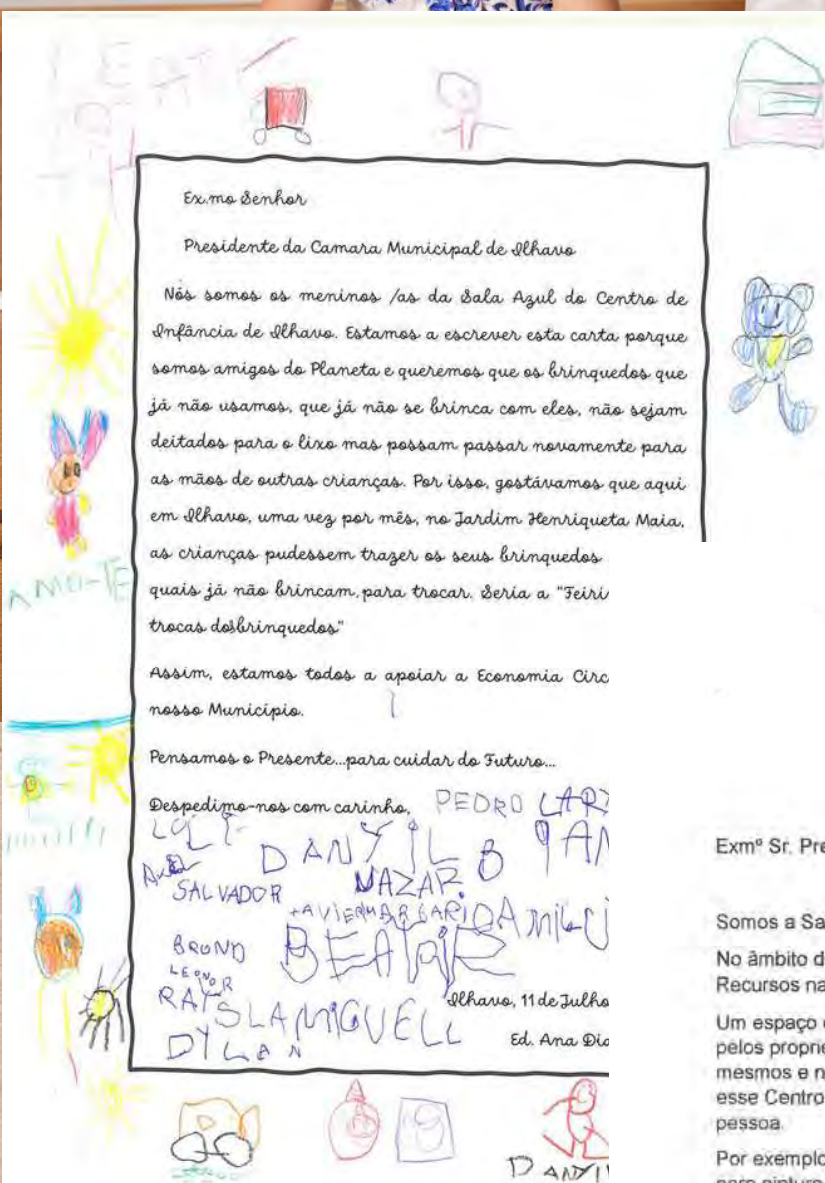 Ex.mo Senhor
Presidente da Camara Municipal de Ilhavo
Nós somos os meninos /as da Sala Azul do Centro de
Infância de Ilhavo. Estamos a escrever esta carta porque
somos amigos do Planeta e queremos que os brinquedos que
já não usamos, que já não se brinca com eles, não sejam
deitados para o lixo mas possam passar novamente para
as mãos de outras crianças. Por isso, gostávamos que aqui
em Ilhavo, uma vez por mês, no Jardim Henriqueta Maia,
as crianças pudessem trazer os seus brinquedos
quais já não brincam, para trocar. Seria a "Feiri
trocas dos brinquedos"
AMO-TE
Assim, estamos todos a apoiar a Economia Circ
nosso Município.
Pensamos o Presente...para cuidar do Futuro...
Despedimo-nos com carinho,
PEDRO
DANYIL
SALVADOR
NAZAR
MARGARIDA
BRUNO
BEATRIZ
LEONOR
RAYSLA MIGUELL
DYLAN
Ilhavo, 11 de Julho
Ed. Ana Dia
Exmº Sr. Pre
Somos a Sa
No âmbito d
Recursos na
Um espaço
pelos proprie
mesmos e n
esse Centro
pessoa.
Por exemplo